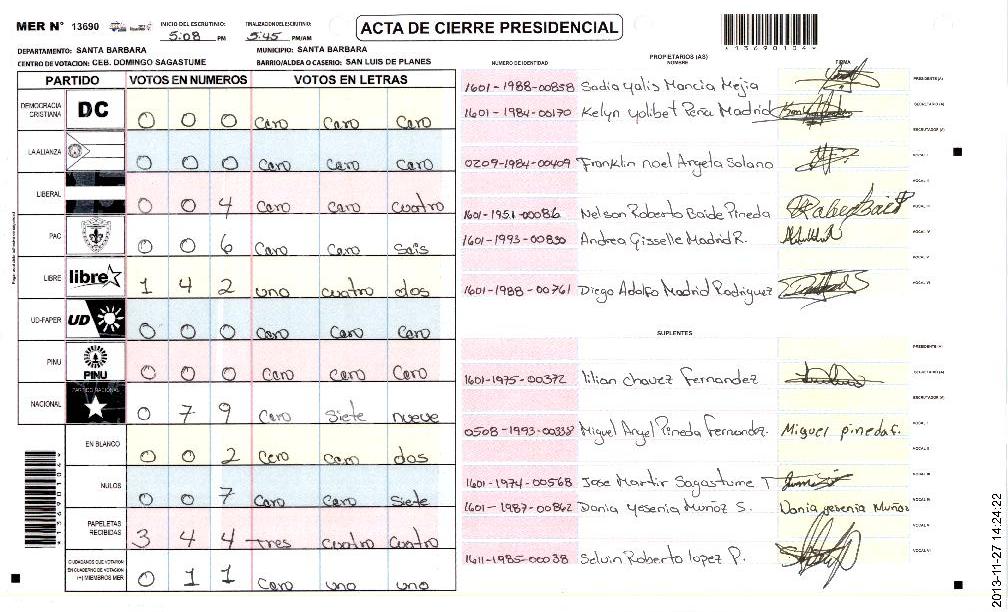 MER N° 13690 INICIO DEL ESCRUTINIO: 5:08 PM FINALIZACION DEL ESCRUTINIO: 5:45 PM/AM
ACTA DE CIERRE PRESIDENCIAL
1369010 4
DEPARTAMENTO: SANTA BARBARA MUNICIPIO: SANTA BARBARA
CENTRO DE VOTACION: CEB. DOMINGO SAGASTUME BARRIO/ALDEA O CASERIO: SAN LUIS DE PLANES
PARTIDO VOTOS EN NUMEROS VOTOS EN LETRAS
DEMOCRACIA CRISTIANA DC 0 0 0 Caro Caro Caro
LA ALIANZA 0 0 0 Caro Caro Caro
LIBERAL 0 0 4 Caro Caro cuatro
PAC 0 0 6 Caro Caro Sais
LIBRE libre 1 4 2 uno cuatro dos
UD-FAPER UD 0 0 0 Caro Caro Caro
PINU PINU 0 0 0 Caro Caro Caro
NACIONAL 0 7 9 Caro Siete nueve
EN BLANCO 0 0 2 Cero Caro dos
NULOS 0 0 7 Caro Caro Siete
PAPELETAS RECIBIDAS 3 4 4 tres cuatro cuatro
CIUDADANOS QUE VOTARON EN CUADERNO DE VOTACION (+) MIEMBROS MER 0 1 1 Caro uno uno
PROPIETARIOS (AS)
NUMERO DE IDENTIDAD NOMBRE FIRMA
1601-1988-00858 Sadia Yalis Mancia Mejia PRESIDENTE (A)
1601-1984-00170 Kelyn Yolibet Peña Madrid SECRETARIO (A)
ESCRUTADOR (A)
0209-1984-00409 Franklin noel Argeta Solano VOCAL I
VOCAL II
1601-1951-00086 Nelson Roberto Baide Pineda VOCAL III
1601-1993-00830 Andrea Gisselle Madrid R. VOCAL IV
VOCAL V
1601-1988-00761 Diego Adolfo Madrid Rodriguez VOCAL VI
SUPLENTES
PRESIDENTE (A)
1601-1975-00372 lilian chavez Fernandez SECRETARIO (A)
ESCRUTADOR (A)
0508-1993-00338 Miguel Angel Pineda Fernandez. Miguel pineda f. VOCAL I
VOCAL II
1601-1974-00568 Jose Martir Sagastume T VOCAL III
1601-1987-00862 Dania Yesenia Muñoz S. Dania yesenia Muñoz VOCAL IV
VOCAL V
1611-1985-00038 Selvin Roberto lopez P. VOCAL VI
2013-11-27 14:24:22